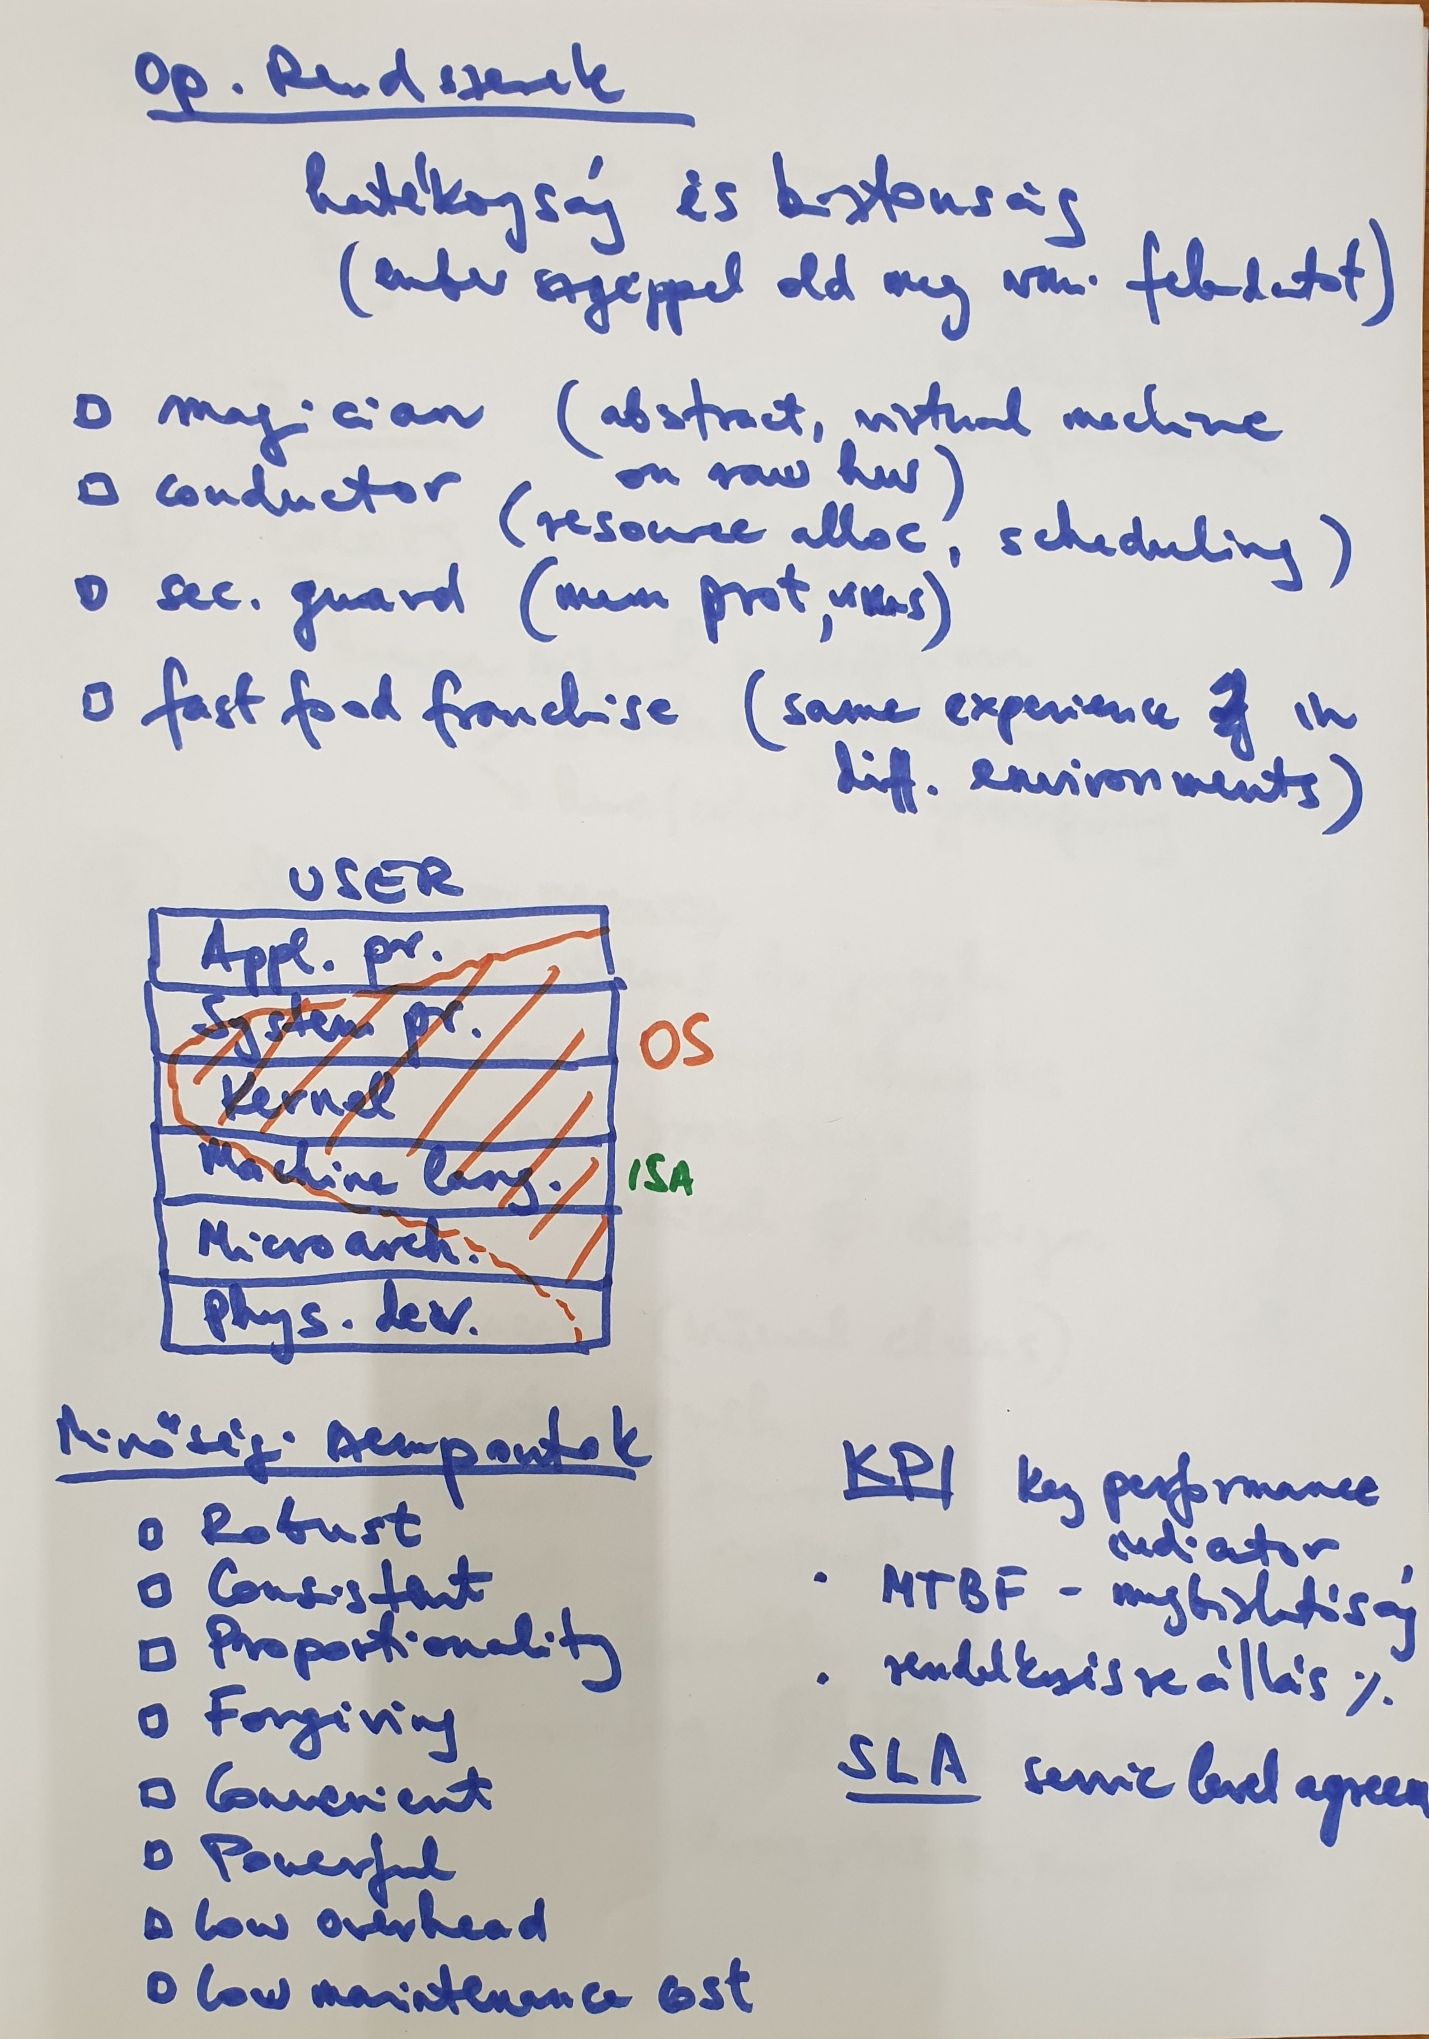 Op. Rendszerek
hatékonyság és biztonság
(ember szgéppel old meg vmi. feladatot)
magician (abstract, virtual machine
on raw hw)
conductor (resource alloc, scheduling)
sec. guard (mem prot, virus)
fast food franchise (same experience in
diff. environments)
USER
Appl. pr.
System pr.
OS
Kernel
Machine lang.
ISA
Microarch.
Phys. dev.
Minőségi szempontok
Robust
Consistent
Proportionality
Forgiving
Convenient
Powerful
low overhead
low maintenance cost
KPI key performance
indicator
• MTBF - megbízhatóság
• rendelkezésre állás %.
SLA servic level agreem